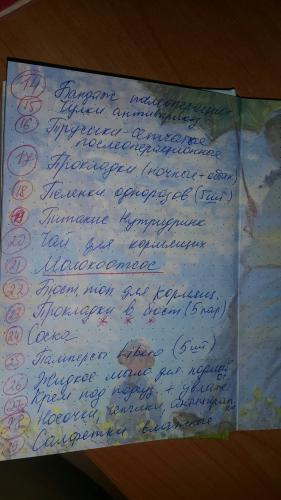 14 Бандаж послеоперацион
15 Чулки антиварикоз
16 Трусики-сетчатые
послеоперационные
17 Прокладки (ночные + обыч.
18 Пеленки одноразов (5 шт)
19 Питание Нутридринк
20 Чай для кормящих
21 Молокоотсос
22 Бюст, топ для кормящ.
23 Прокладки в бюст (5 пар)
24 Соска
25 Памперсы Libero (5 шт)
26 Жидкое мыло для
27 Крем под подгуз +
28 Носочки, чепчики,
29 Салфетки влажные